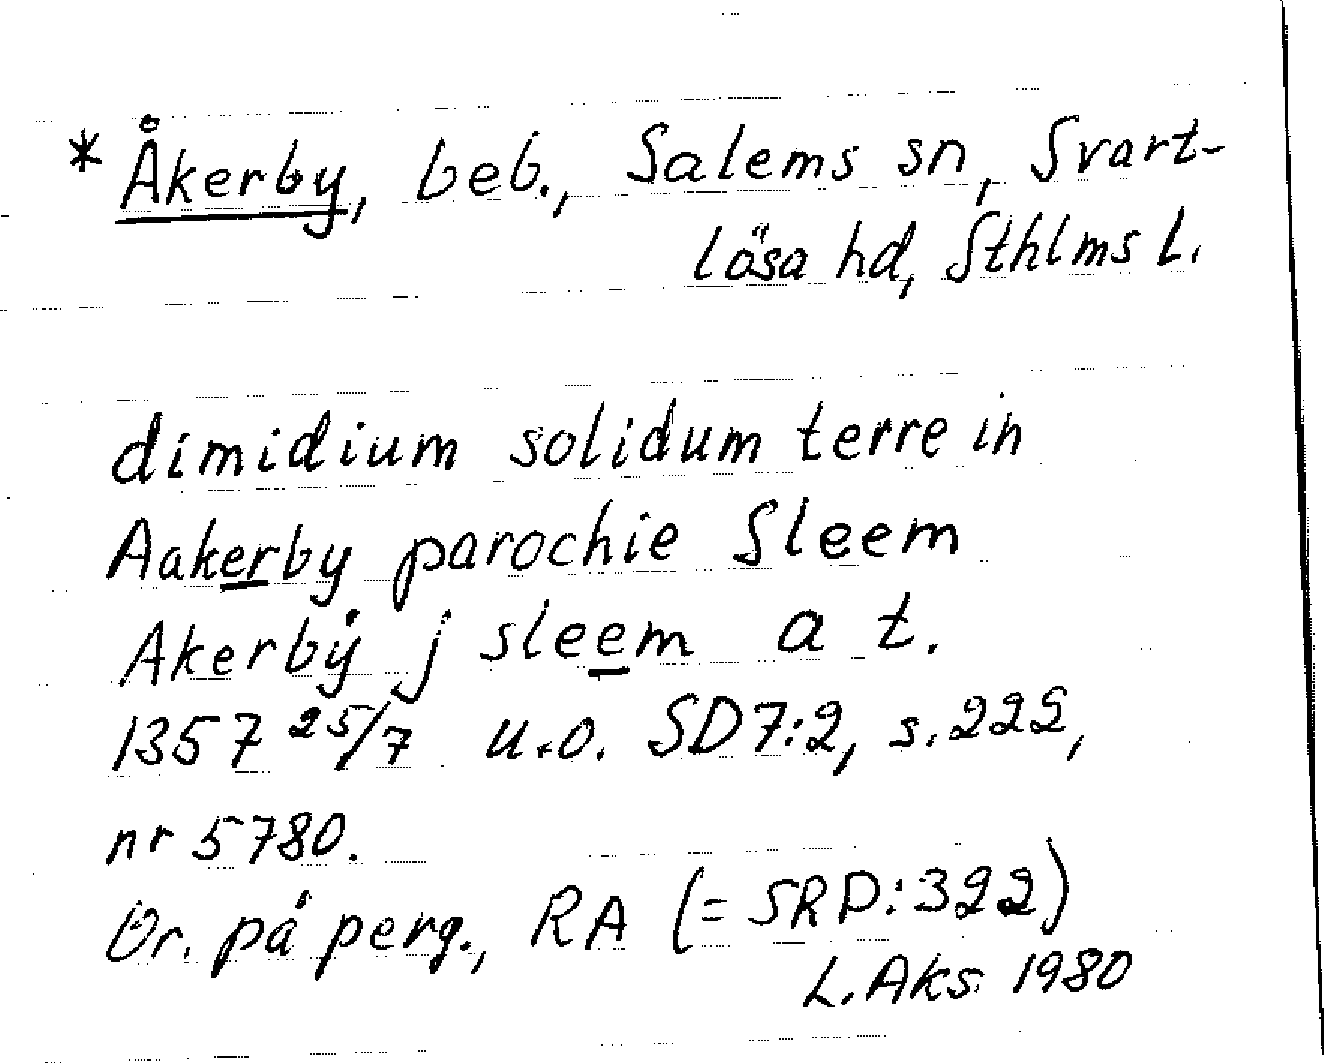 * Åkerby, beb., Salems sn, Svart-
lösa hd, Sthlms L.
dimidium solidum terre in
Aakerby parochie Sleem
Akerbẙ j sleem a t.
1357 25/7 u.o. SD7:2, s. 222,
nr 5780.
Or. på perg., RA (= SRP: 322)
L. Aks. 1980